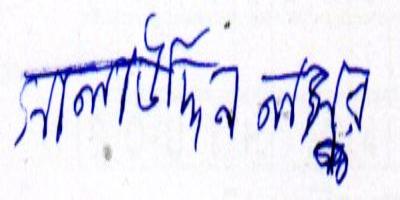 সালাউদ্দিন লস্কর